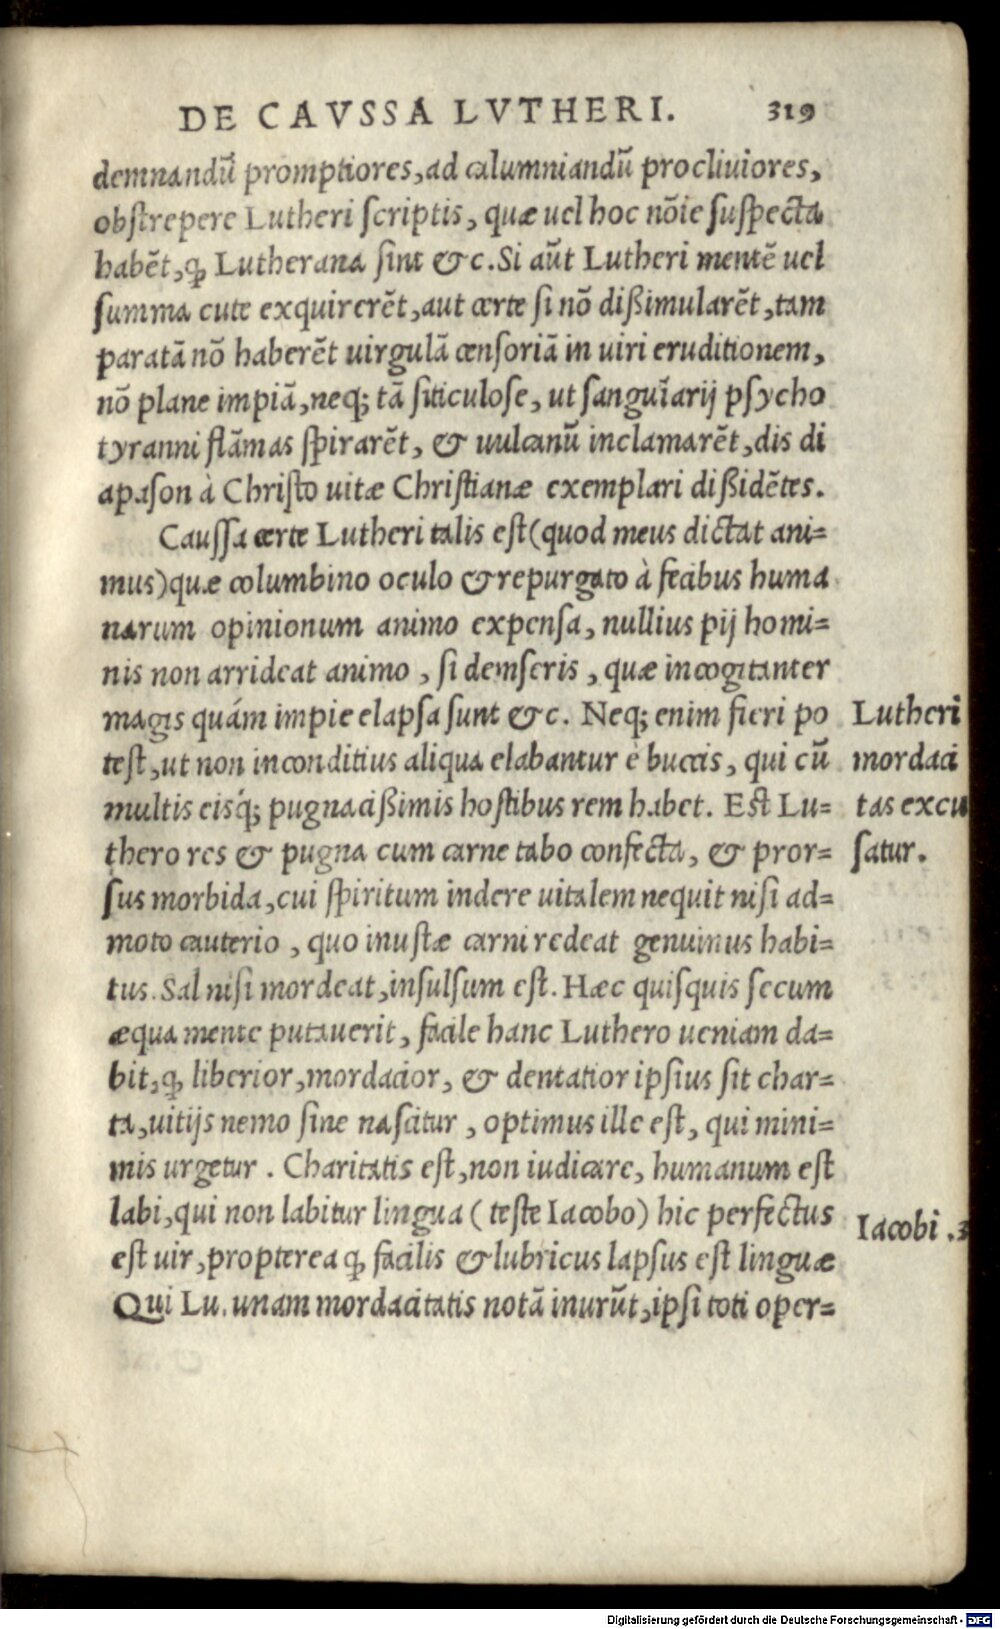 DE CAVSSA LVTHERI. 319
demnandũ promptiores, ad calumniandũ procliuiores,
obstrepere Lutheri scriptis, quæ uel hoc nõie suspecta
habẽt, ꝙ Lutherana sint &c. Si aũt Lutheri mentẽ uel
summa cute exquirerẽt, aut certe si nõ dißimularẽt, tam
paratã nõ haberẽt uirgulã censoriã in uiri eruditionem,
nõ plane impiã, neq; tã siticulose, ut sanguĩarij psycho
tyranni flãmas spirarẽt, & uulcanũ inclamarẽt, dis di
apason à Christo uitæ Christianæ exemplari dißidẽtes.
Caussa certe Lutheri talis est (quod meus dictat ani=
mus) quæ columbino oculo & repurgato à fecibus huma
narum opinionum animo expensa, nullius pij homi=
nis non arrideat animo, si demseris, quæ incogitanter
magis quám impie elapsa sunt &c. Neq; enim fieri po
test, ut non inconditius aliqua elabantur è buccis, qui cũ
multis eisq́; pugnacißimis hostibus rem habet. Est Lu=
thero res & pugna cum carne tabo confecta, & pror=
sus morbida, cui spiritum indere uitalem nequit nisi ad=
moto cauterio, quo inustæ carni redeat genuinus habi=
tus. Sal nisi mordeat, insulsum est. Hæc quisquis secum
æqua mente putauerit, facile hanc Luthero ueniam da=
bit, ꝙ liberior, mordacior, & dentatior ipsius sit char=
ta, uitijs nemo sine nascitur, optimus ille est, qui mini=
mis urgetur. Charitatis est, non iudicare, humanum est
labi, qui non labitur lingua (teste Iacobo) hic perfectus
est uir, propterea ꝙ facilis & lubricus lapsus est linguæ
Qui Lu. unam mordacitatis notã inurũt, ipsi toti oper=
Lutheri
mordaci
tas excu
satur.
Iacobi .3
Digitalisierung gefördert durch die Deutsche Forschungsgemeinschaft - DFG